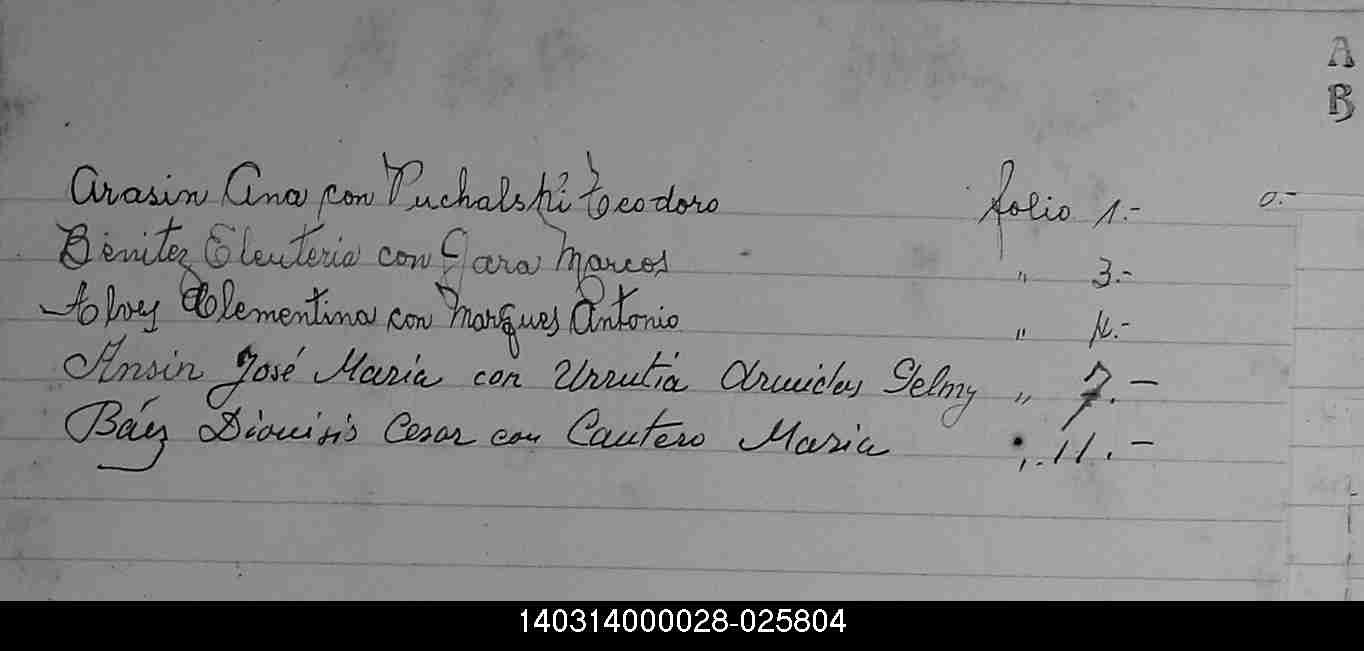 A
B
Arasin Ana con Puchalski Teodoro folio 1.-
Benitez Eleuteria con Jara Marcos " 3.-
Alves Clementina con Marques Antonio " 4.-
Ansin José Maria con Urrutia Selmy " 7.-
Báez Dionisio Cesar con Cantero Maria " 11.-
140314000028-025804